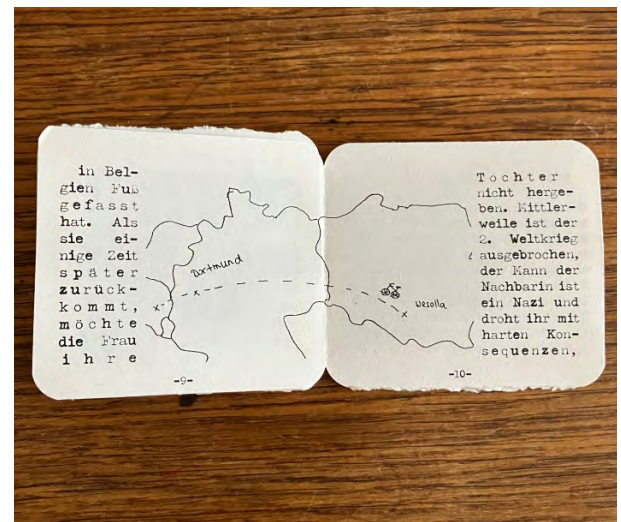 in Bel-
gien Fuß
gefasst
hat. Als
sie ei-
nige Zeit
später
zurück-
kommt,
möchte
die Frau
ihre
Dortmund
-9-
Wesolla
Tochter
nicht herge-
ben. Mittler-
weile ist der
2. Weltkrieg
ausgebrochen,
der Mann der
Nachbarin ist
ein Nazi und
droht ihr mit
harten Kon-
sequenzen,
-10-